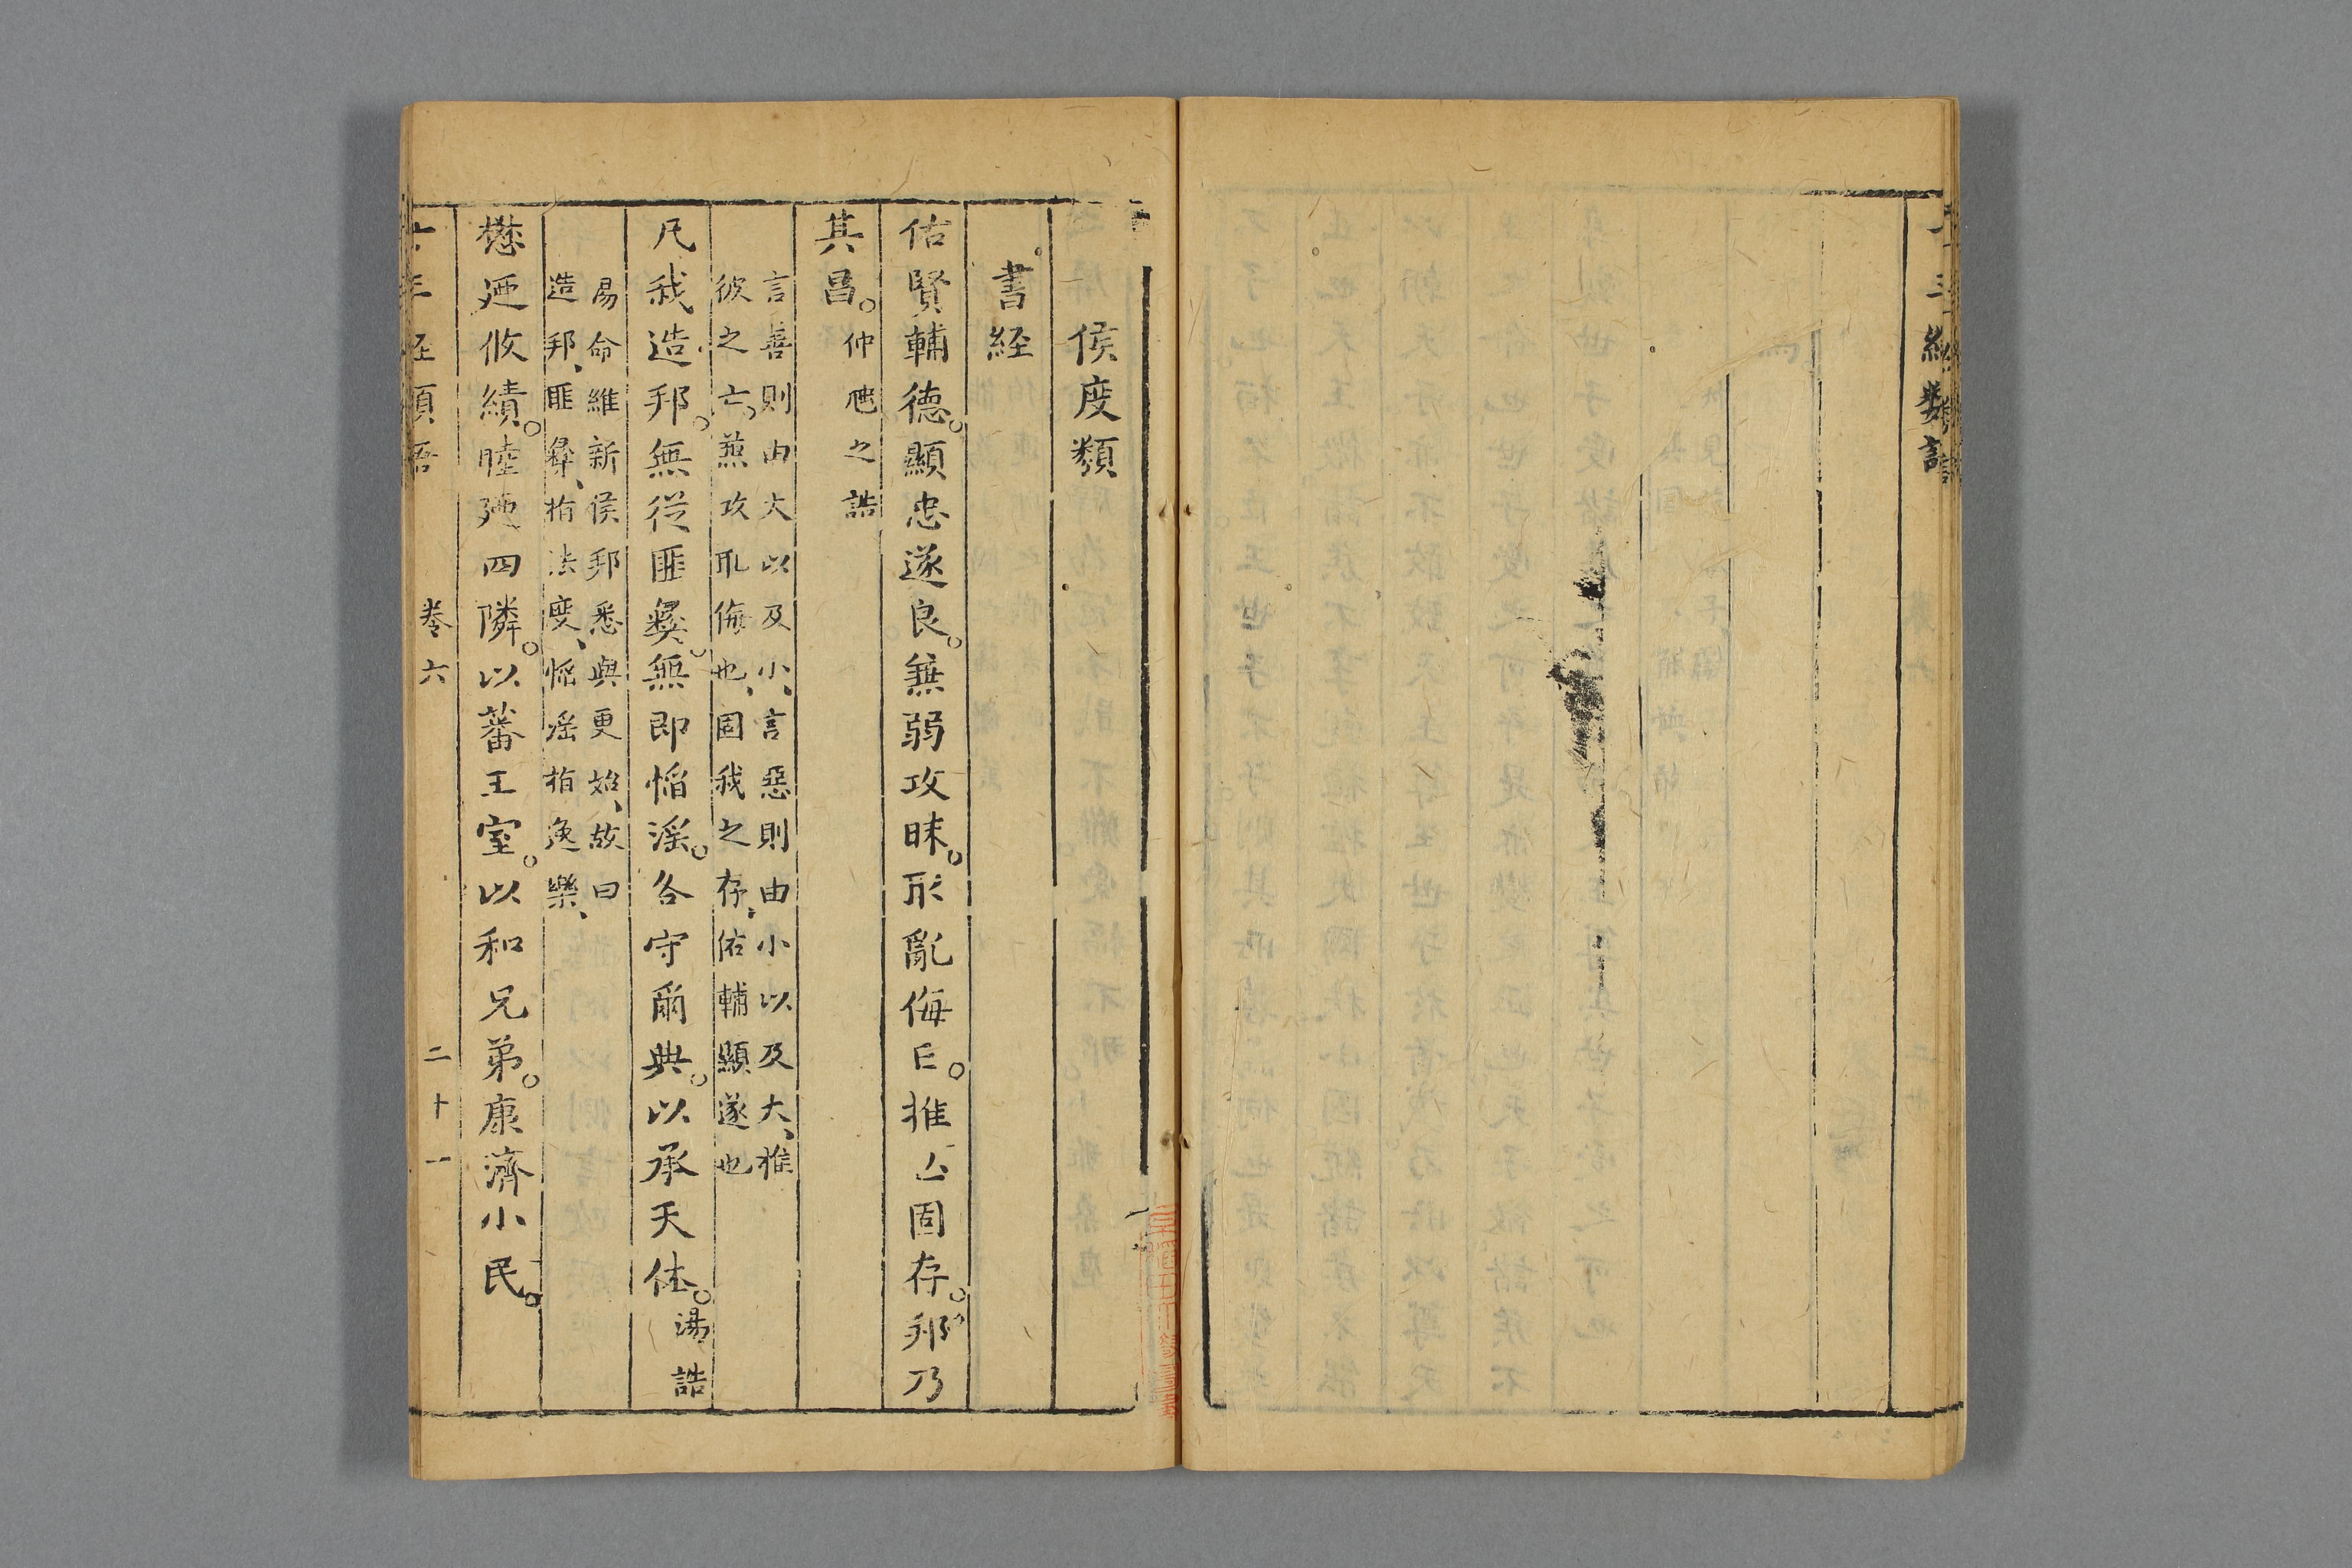 侯度類
書経
佑賢輔德。顯忠遂良。兼弱攻昧。取亂侮亡。推亡固存。邦乃
其昌。仲虺之誥
言善則由大以及小、言惡則由小以及大、推
彼之亡。兼攻取侮也、固我之存、佑輔顯遂也
凡我造邦。無從匪彝。無即慆滛。各守爾典。以承天休。湯誥
易命維新侯邦悉與更始、故曰
造邦、匪彝、指法度、慆滛指逸樂、
懋廼攸績。睦廼四隣。以蕃王室。以和兄弟。康濟小民。
卷六
二十一